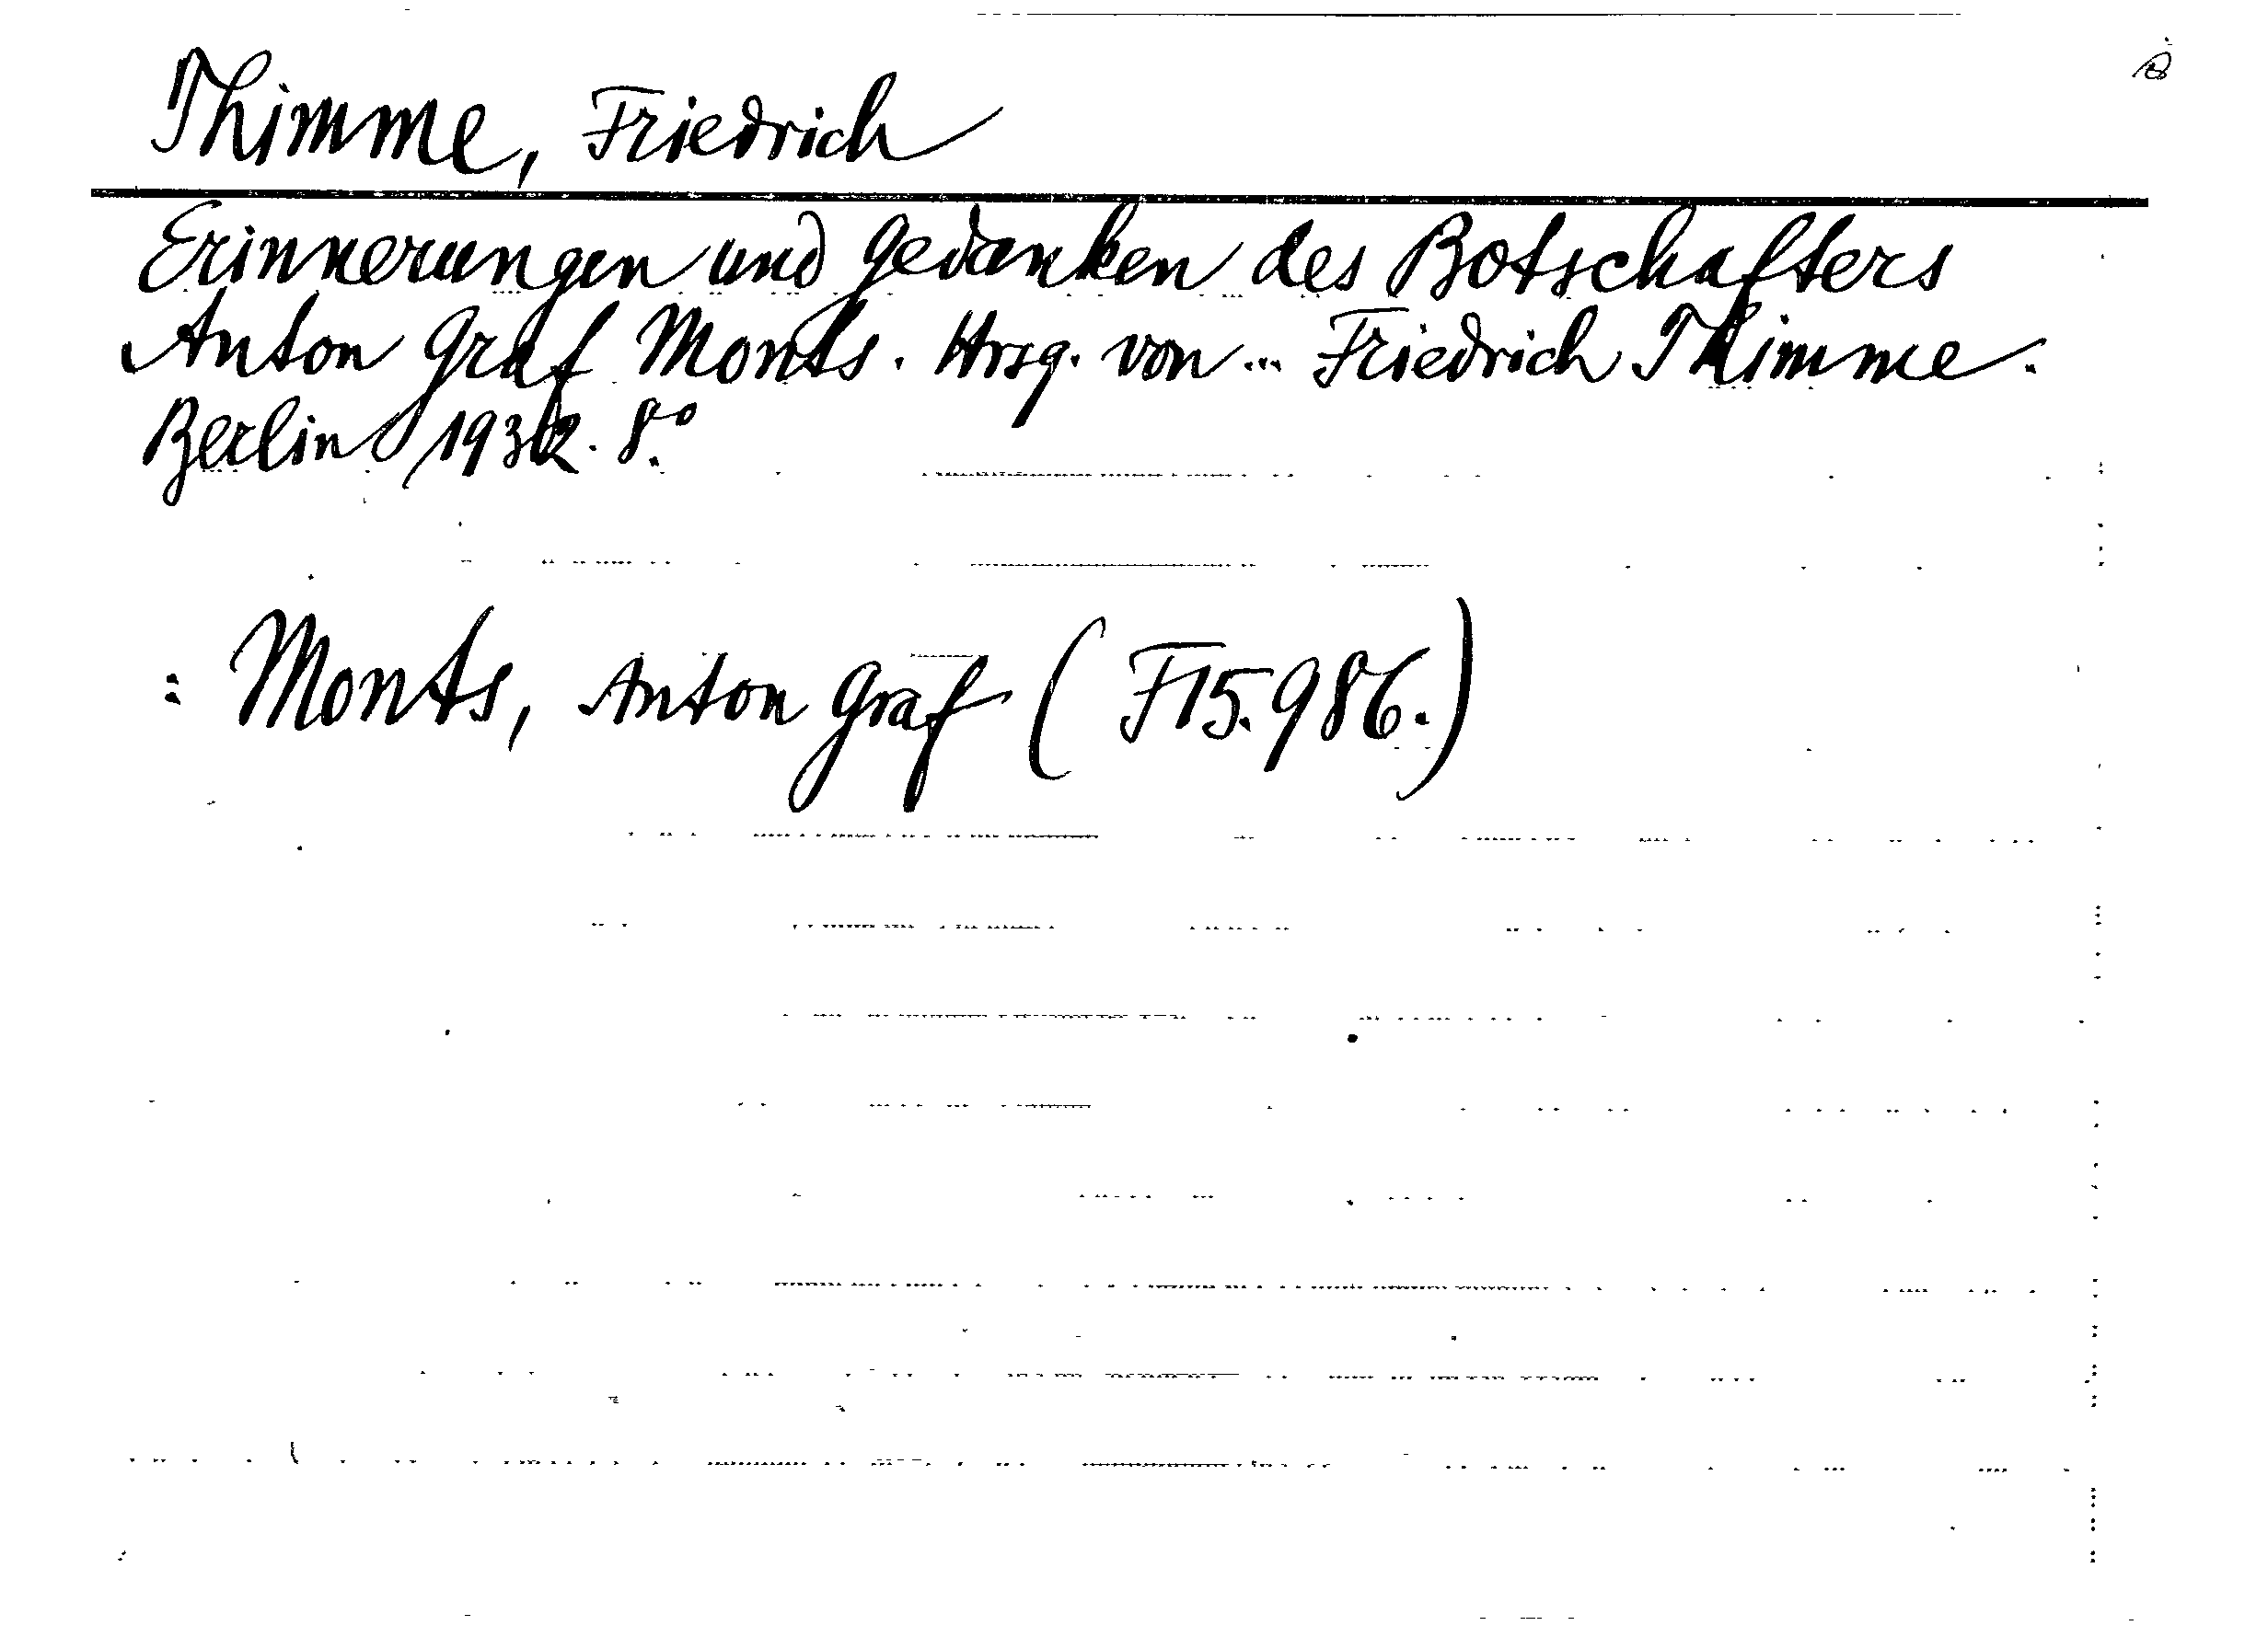 Thimme, Friedrich
Erinnerungen und Gedanken des Botschafters
Anton Graf Monts. Hrsg. von... Friedrich Thimme.
Berlin 1932. 8°
: Monts, Anton Graf (F15.986.)